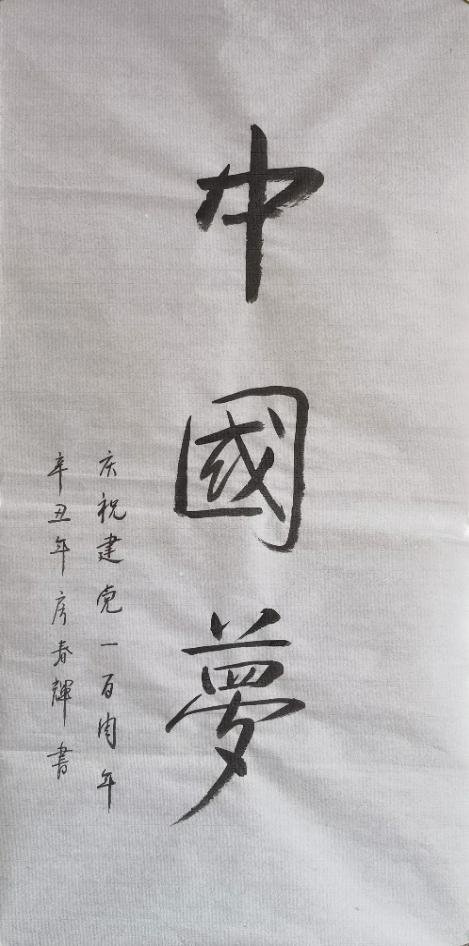 中國夢
庆祝建党一百周年
辛丑年房春輝書